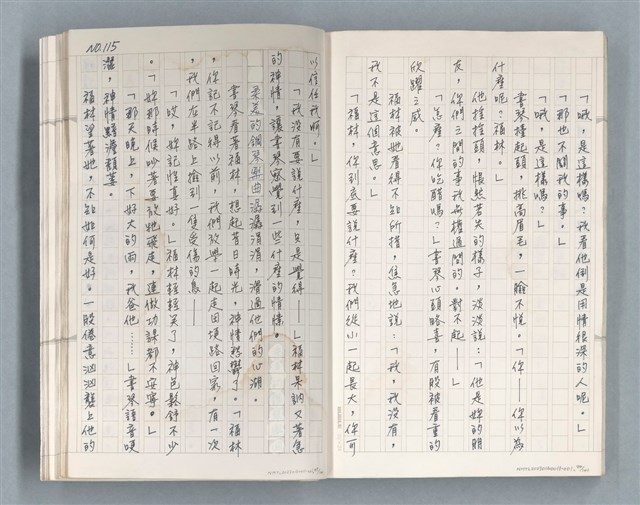 「哦，是這樣嗎？我看他倒是用情很深的人呢。」
「那也不關我的事。」
「哦，是這樣嗎？」
書琴擡起頭，挑高眉毛，一臉不悅。「你——你以為
什麼呢？福林。」
他搖搖頭，悵然若失的樣子，淡淡說：「他是妳的朋
友，你們之間的事我無權過問的。對不起——」
「怎麼？你吃醋嗎？」書琴心頭略喜，有股被看重的
欣躍之感。
福林被她看得不知所措，焦急地說：「我，我沒有，
我不是這個意思。」
「福林，你到底要說什麼？我們從小一起長大，你可
以信任我啊。」
「我沒有要說什麼，只是覺得——」福林呆訥又著急
的神情，讓書琴感覺到一些什麼的情愫。
柔美的鋼琴樂曲潺潺涓涓，滑過他們的心湖。
書琴看著福林，想起昔日時光，神情愁鬱了。「福林
，你記不記得以前，我們放學一起走田埂路回家，有一次
，我們在半路上撿到一隻受傷的鳥——」
「哎，妳記性真好。」福林輕輕笑了，神色鬆舒不少
。「妳那時候吵著要放牠飛走，連做功課都不安寧。」
「那天晚上，下好大的雨，我爸他……」書琴語音哽
澀，神情黯澀頹萎。
福林望著她，不知如何是好。一股倦意洶洶襲上他的
NO.115